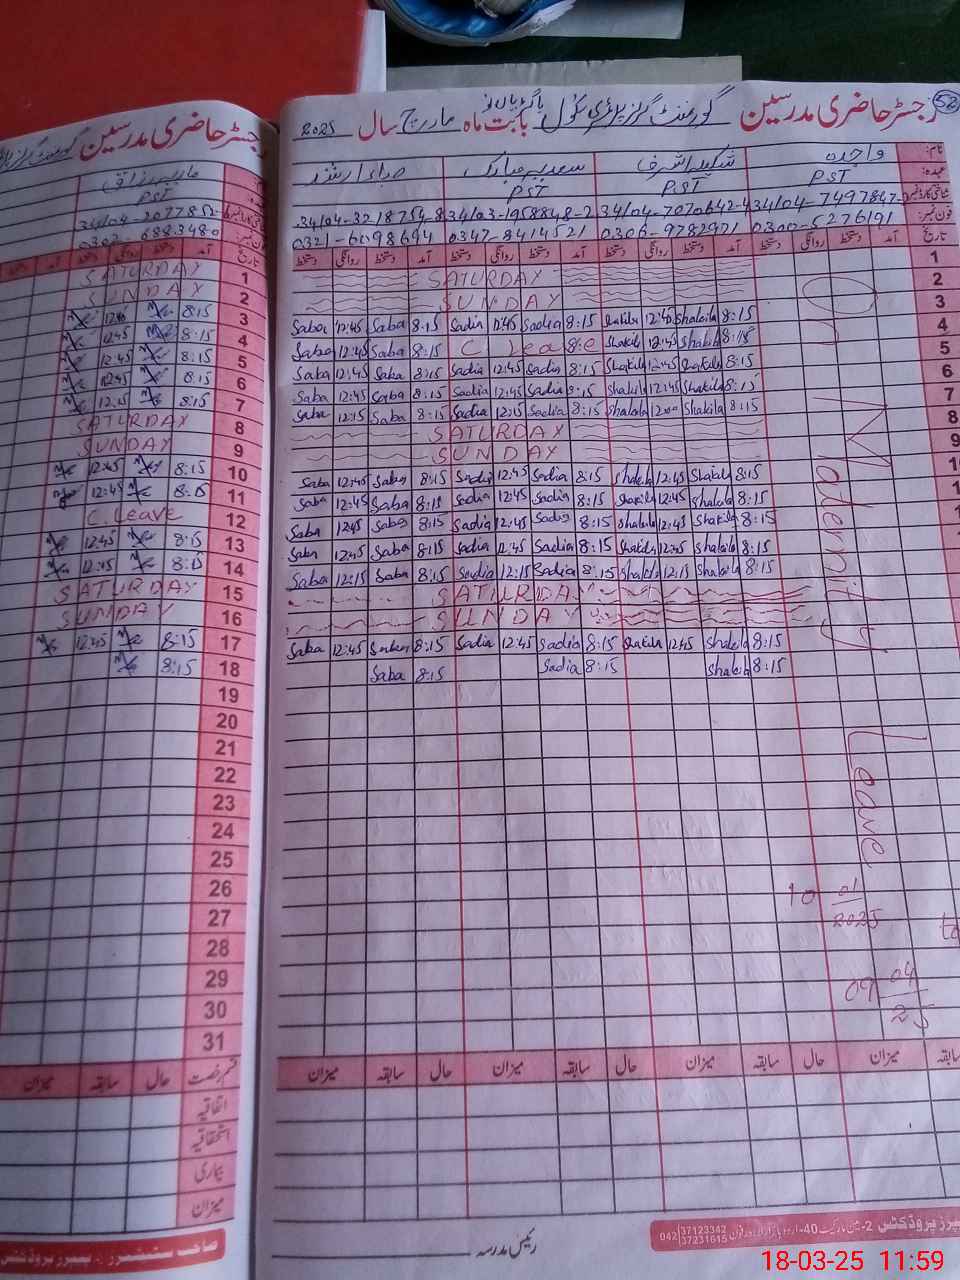 رجسٹر حاضری مدرسین گورنمنٹ گرلز پرائمری سکول بابت ماہ مارچ سال 2025
52
نام: واجدہ شکیلہ اشرف سعدیہ مبارک صباء ارشد
عہدہ: PST PST PST
شناختی کارڈ نمبر 34104-7497847- 34104-7070642-4 34103-1958848-2 34104-3218754-8
فون نمبر: 0300-5276191 0306-9782971 0347-8414521 0321-6098694
تاریخ آمد دستخط روانگی دستخط آمد دستخط روانگی دستخط آمد دستخط روانگی دستخط آمد دستخط روانگی دستخط
1 SATURDAY
2 SUNDAY
3 Saba 12:45 Saba 8:15 Sadia 12:45 Sadia 8:15 Shakila 12:45 Shakila 8:15
4 Saba 12:45 Saba 8:15 C Leave Shakila 12:45 Shakila 8:15
5 Saba 12:45 Saba 8:15 Sadia 12:45 Sadia 8:15 Shakila 12:45 Shakila 8:15
6 Saba 12:45 Saba 8:15 Sadia 12:45 Sadia 8:15 Shakila 12:45 Shakila 8:15
7 Saba 12:15 Saba 8:15 Sadia 12:15 Sadia 8:15 Shakila 12:00 Shakila 8:15
8 SATURDAY
9 SUNDAY
10 Saba 12:45 Saba 8:15 Sadia 12:45 Sadia 8:15 Shakila 12:45 Shakila 8:15
11 Saba 12:45 Saba 8:15 Sadia 12:45 Sadia 8:15 Shakila 12:45 Shakila 8:15
12 Saba 12:45 Saba 8:15 Sadia 12:45 Sadia 8:15 Shakila 12:45 Shakila 8:15
13 Saba 12:45 Saba 8:15 Sadia 12:45 Sadia 8:15 Shakila 12:45 Shakila 8:15
14 Saba 12:15 Saba 8:15 Sadia 12:15 Sadia 8:15 Shakila 12:15 Shakila 8:15
15 SATURDAY
16 SUNDAY
17 Saba 12:45 Saba 8:15 Sadia 12:45 Sadia 8:15 Shakila 12:45 Shakila 8:15
18 Saba 8:15 Sadia 8:15 Shakila 8:15
On Maternity Leave
10 01
2025
09 04
25
سابقہ میزان حال سابقہ میزان حال سابقہ میزان حال سابقہ میزان
رئیس مدرسہ
042 37123342
37231615
رجسٹر حاضری مدرسین گورنمنٹ گرلز
رزاق
PST
تاریخ آمد دستخط روانگی دستخط
1 SATURDAY
2 SUNDAY
3 8:15 12:45
4 8:15 12:45
5 8:15 12:45
6 8:15 12:45
7 8:15 12:15
8 SATURDAY
9 SUNDAY
10 8:15 12:45
11 8:15 12:45
12 C. Leave
13 8:15 12:45
14 8:15
15 SATURDAY
16 SUNDAY
17 8:15 12:45
18 8:15
19
20
21
22
23
24
25
26
27
28
29
30
31
قسم رخصت حال سابقہ میزان
اتفاقیہ
استحقاقیہ
بیماری
میزان
18-03-25 11:59